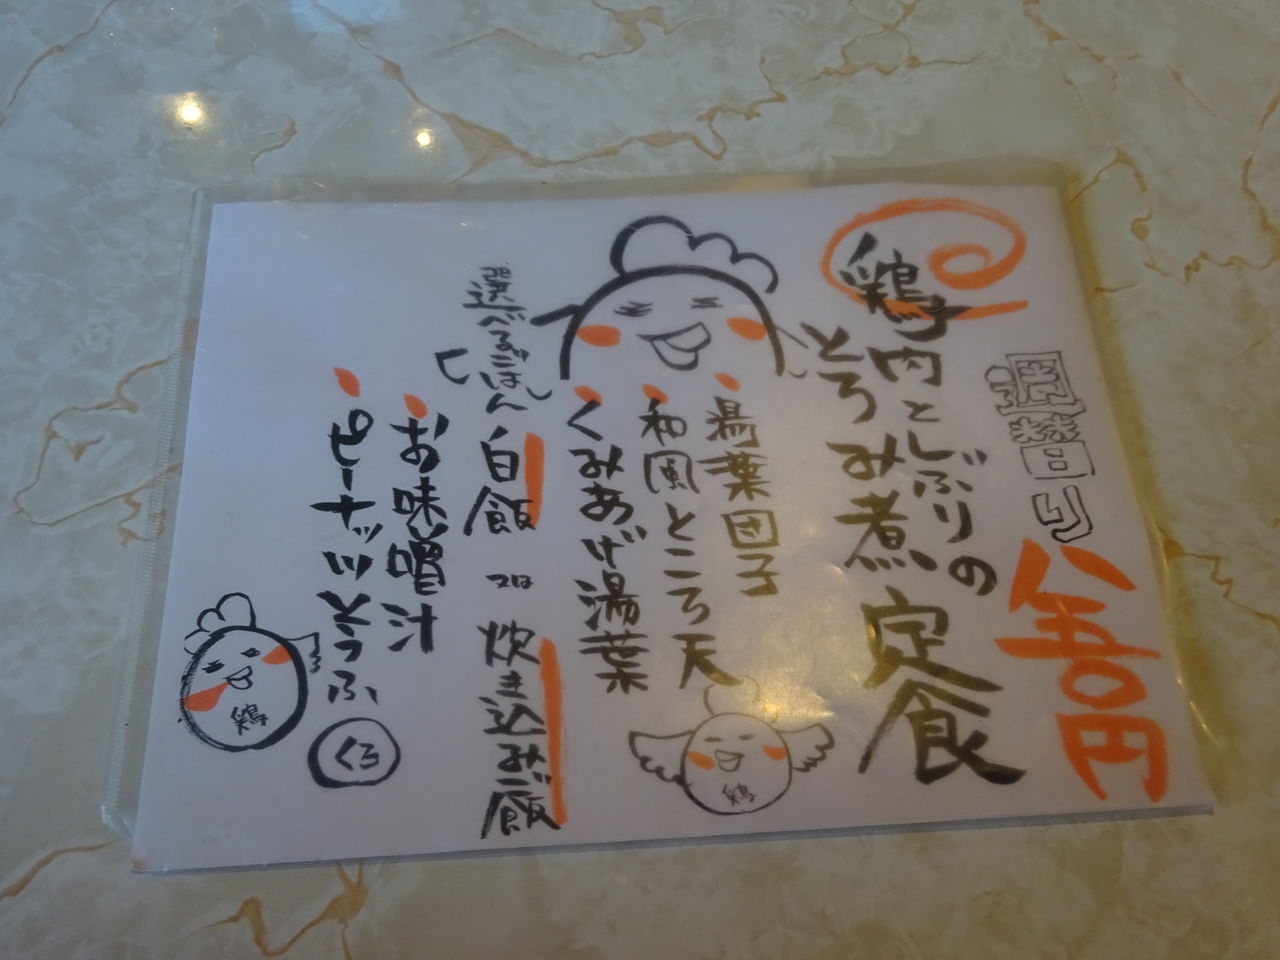 週替り
八五〇円
鶏肉としぶりの
とろみ煮定食
湯葉団子
和風ところ天
くみあげ湯葉
選べるごはん
白飯 又は 炊き込みご飯
お味噌汁
ピーナッツとうふ
くろ
鶏
鶏